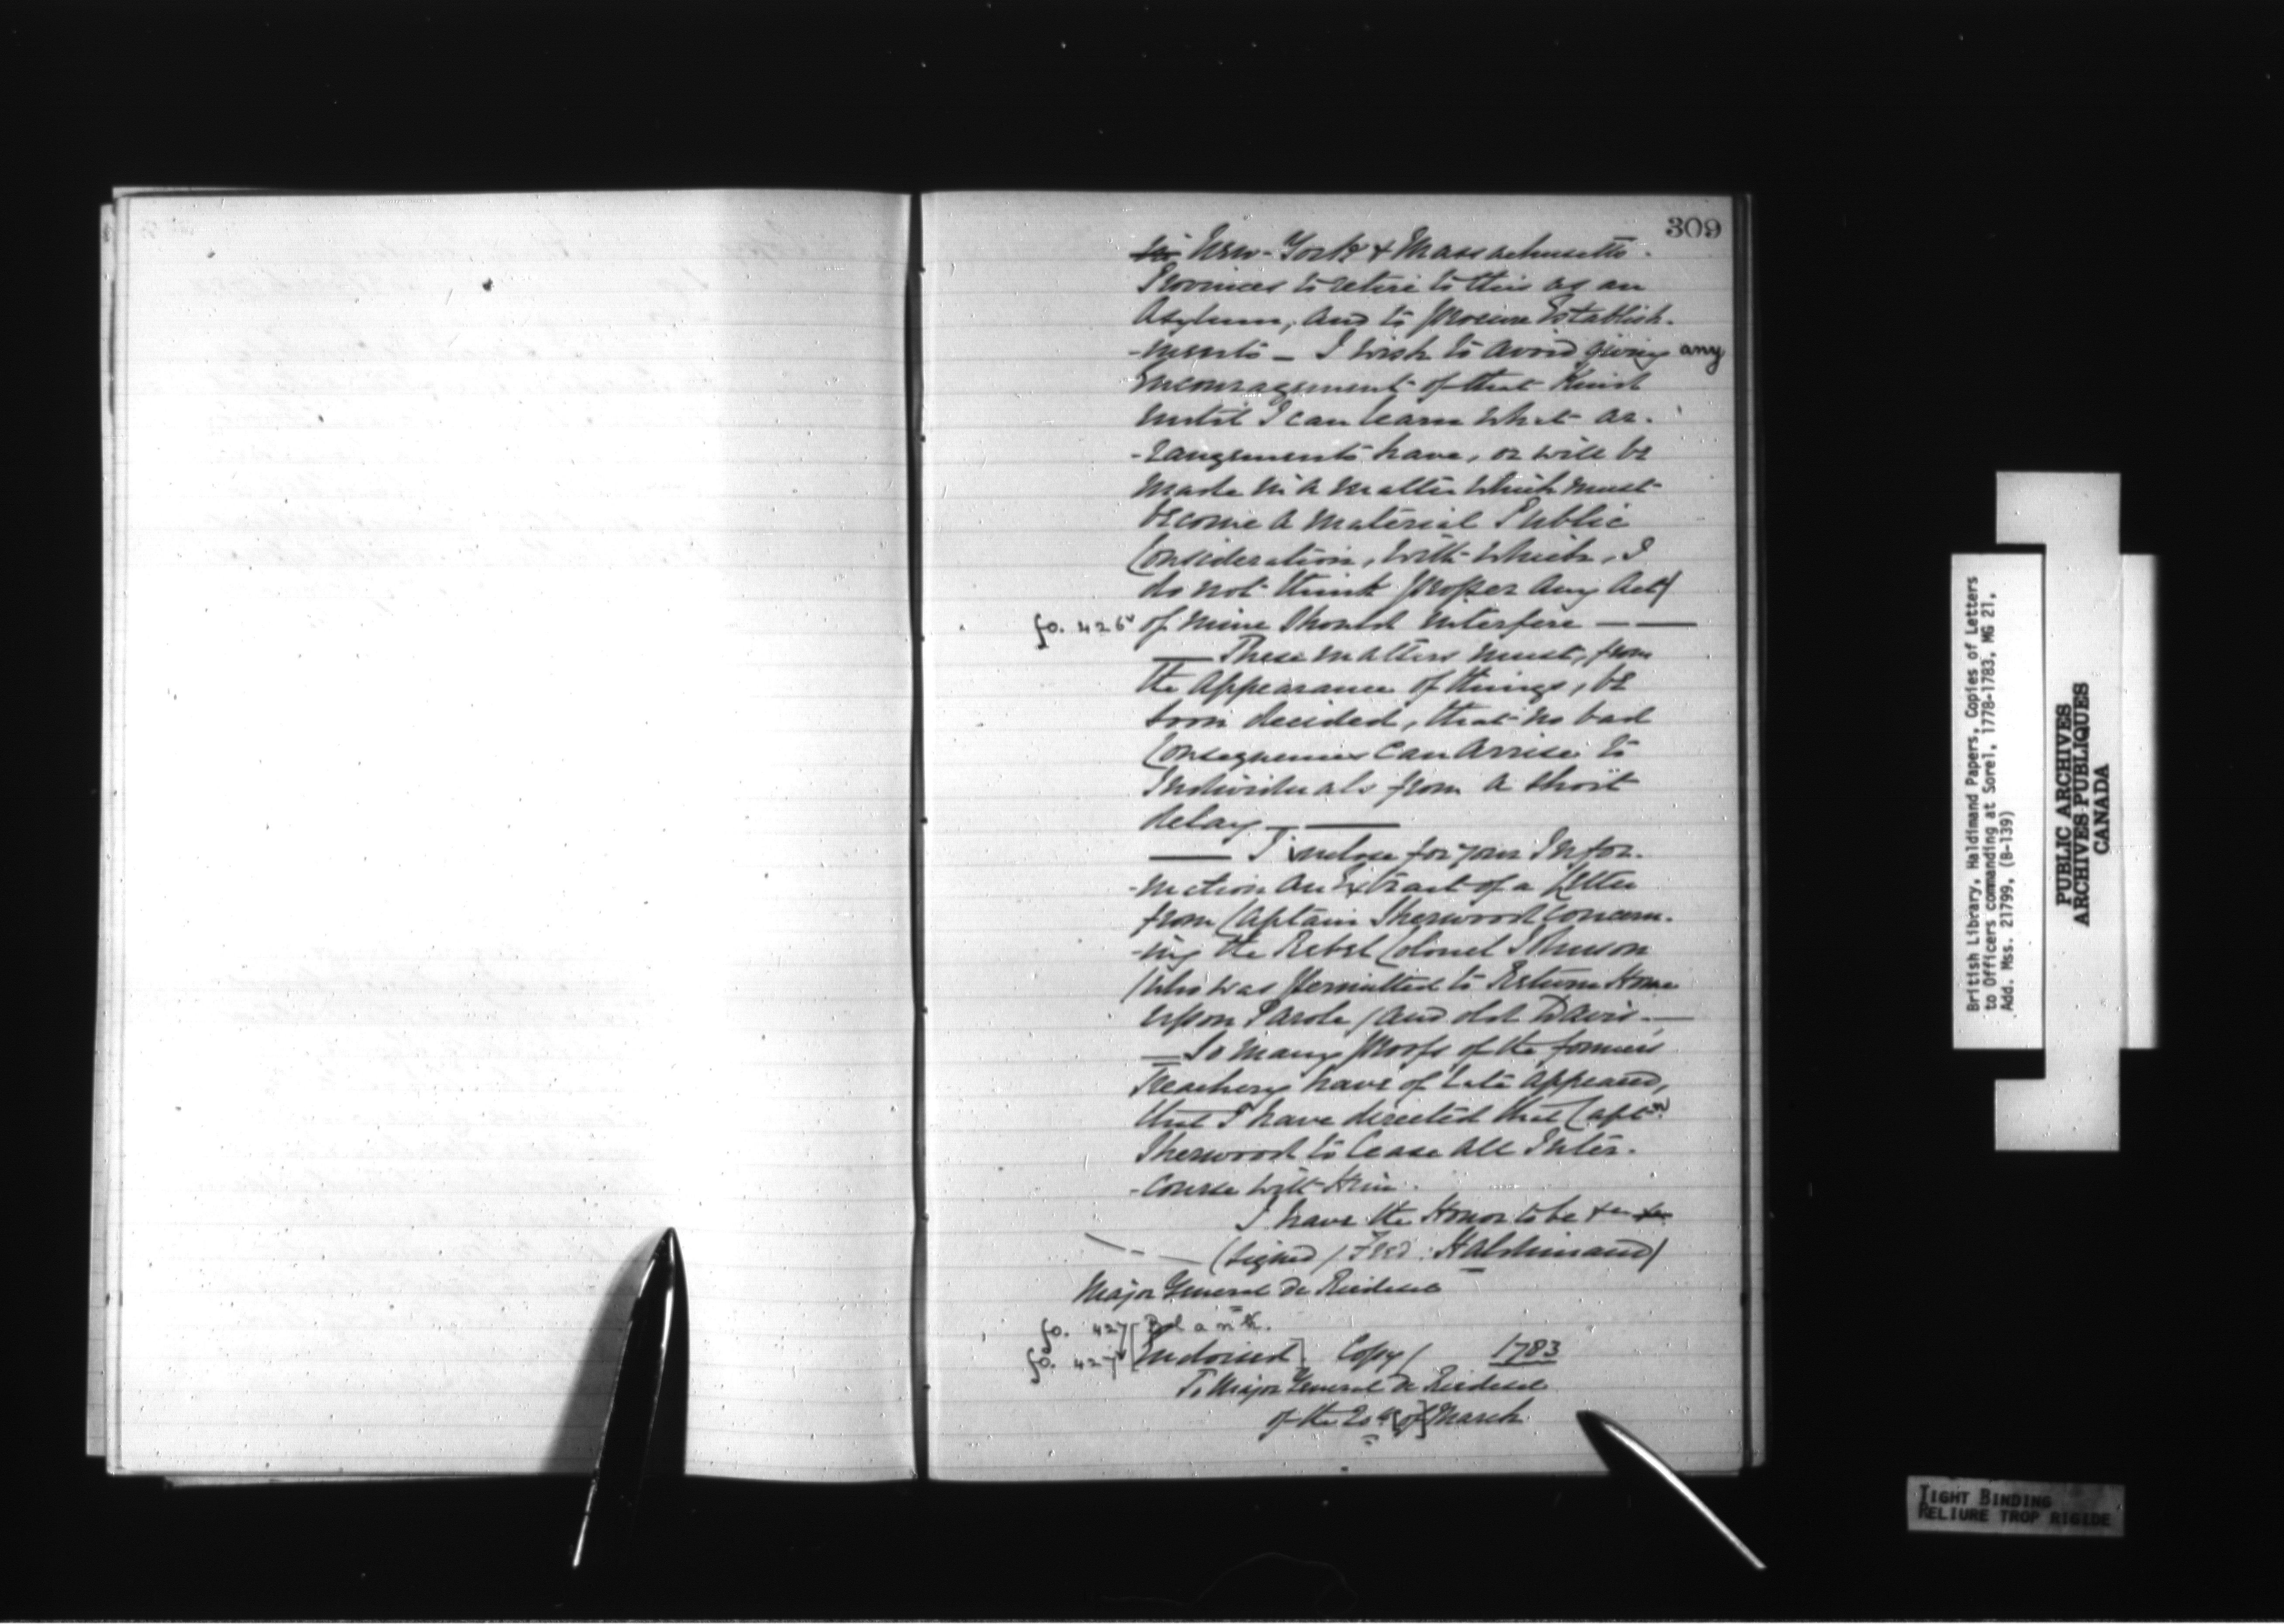 309
in New-York & Massachusetts
Provinces to retire to this as an
Asylum, and to procure Establish-
-ments — I wish to avoid giving any
Encouragement of that Kind
until I can learn what ar-
-rangements have, or will be
made in a matter which must
become a material Public
Consideration, with which, I
do not think proper any Act
fo. 426v of mine should interfere — —
— These matters must, from
the appearance of things, be
soon decided, that no bad
Consequences can arrise to
Individuals from a short
delay — —
— I inclose for your Infor-
-mation an Extract of a Letter
from Captain Sherwood Concern-
-ing the Rebel Colonel Johnson
(who was permitted to Return Home
upon Parole) and old Davis. —
— So many proofs of the formers
Treachery have of late appeared,
that I have directed that Captn
Sherwood to Cease all Inter-
-course with Him.
I have the Honor to be &c &c
(signed) Fred: Haldimand)
Major General De Riedesel
fo. 427 [Blank.
fo. 427v [Endorsed] Copy / 1783
To Major General De Riedesel
of the 20th [of] March
British Library, Haldimand Papers, Copies of Letters
to Officers commanding at Sorel, 1778-1783, MG 21,
Add. Mss. 21799, (B-139)
PUBLIC ARCHIVES
ARCHIVES PUBLIQUES
CANADA
TIGHT BINDING
RELIURE TROP RIGIDE